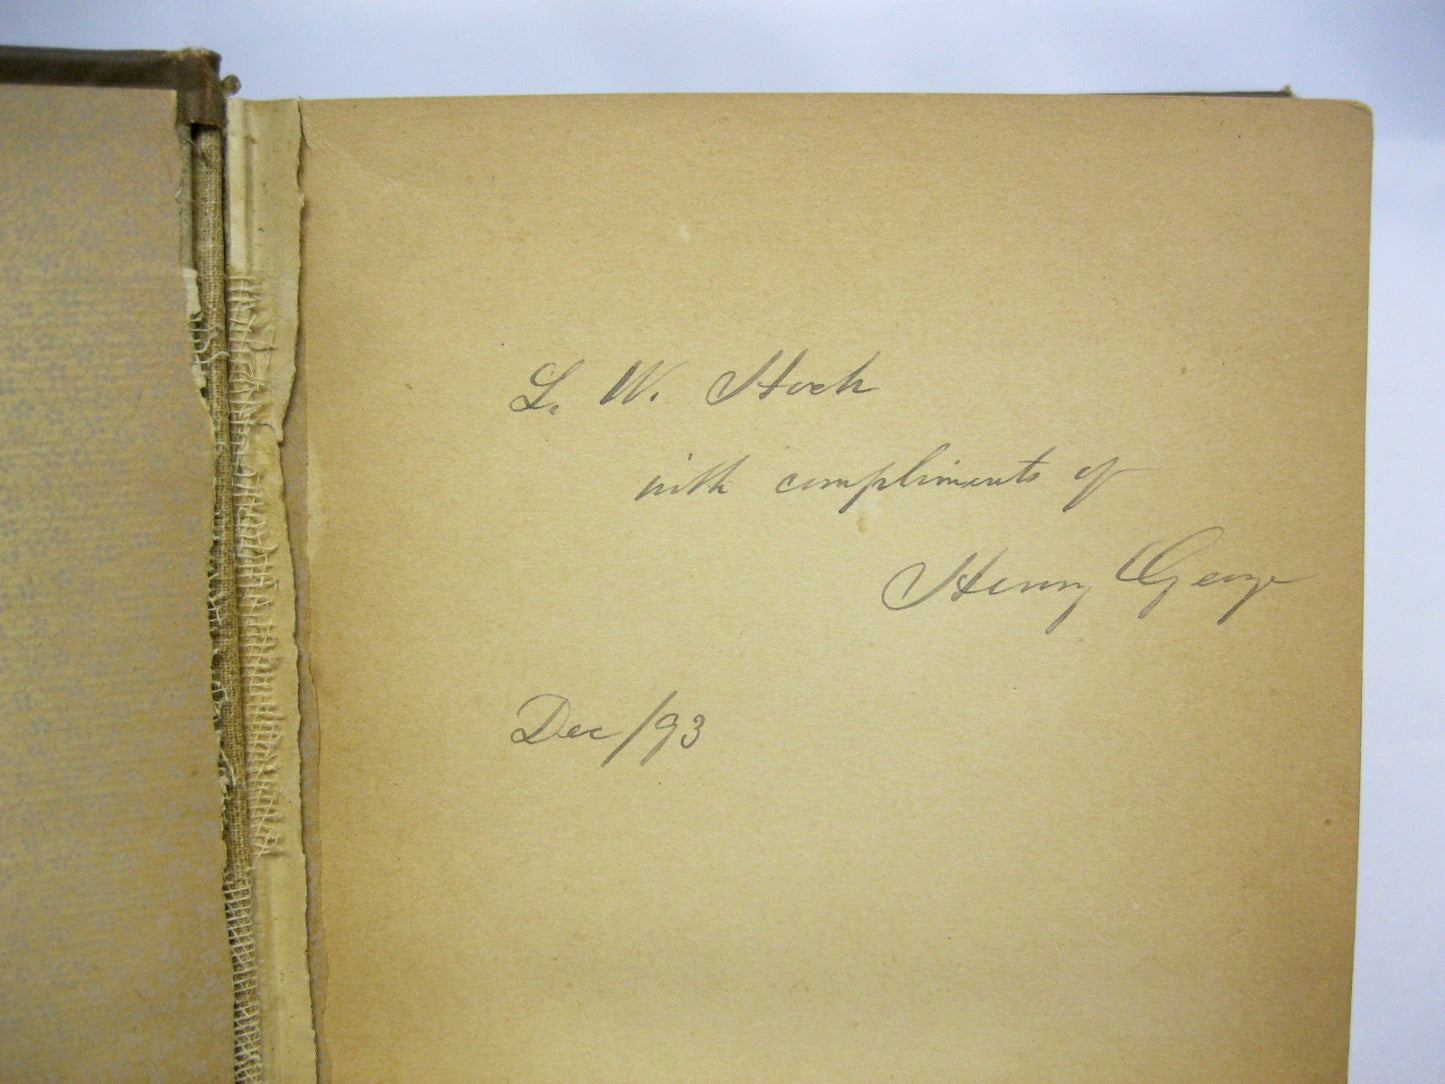 L. W. Hoch
with compliments of
Henry George
Dec/93